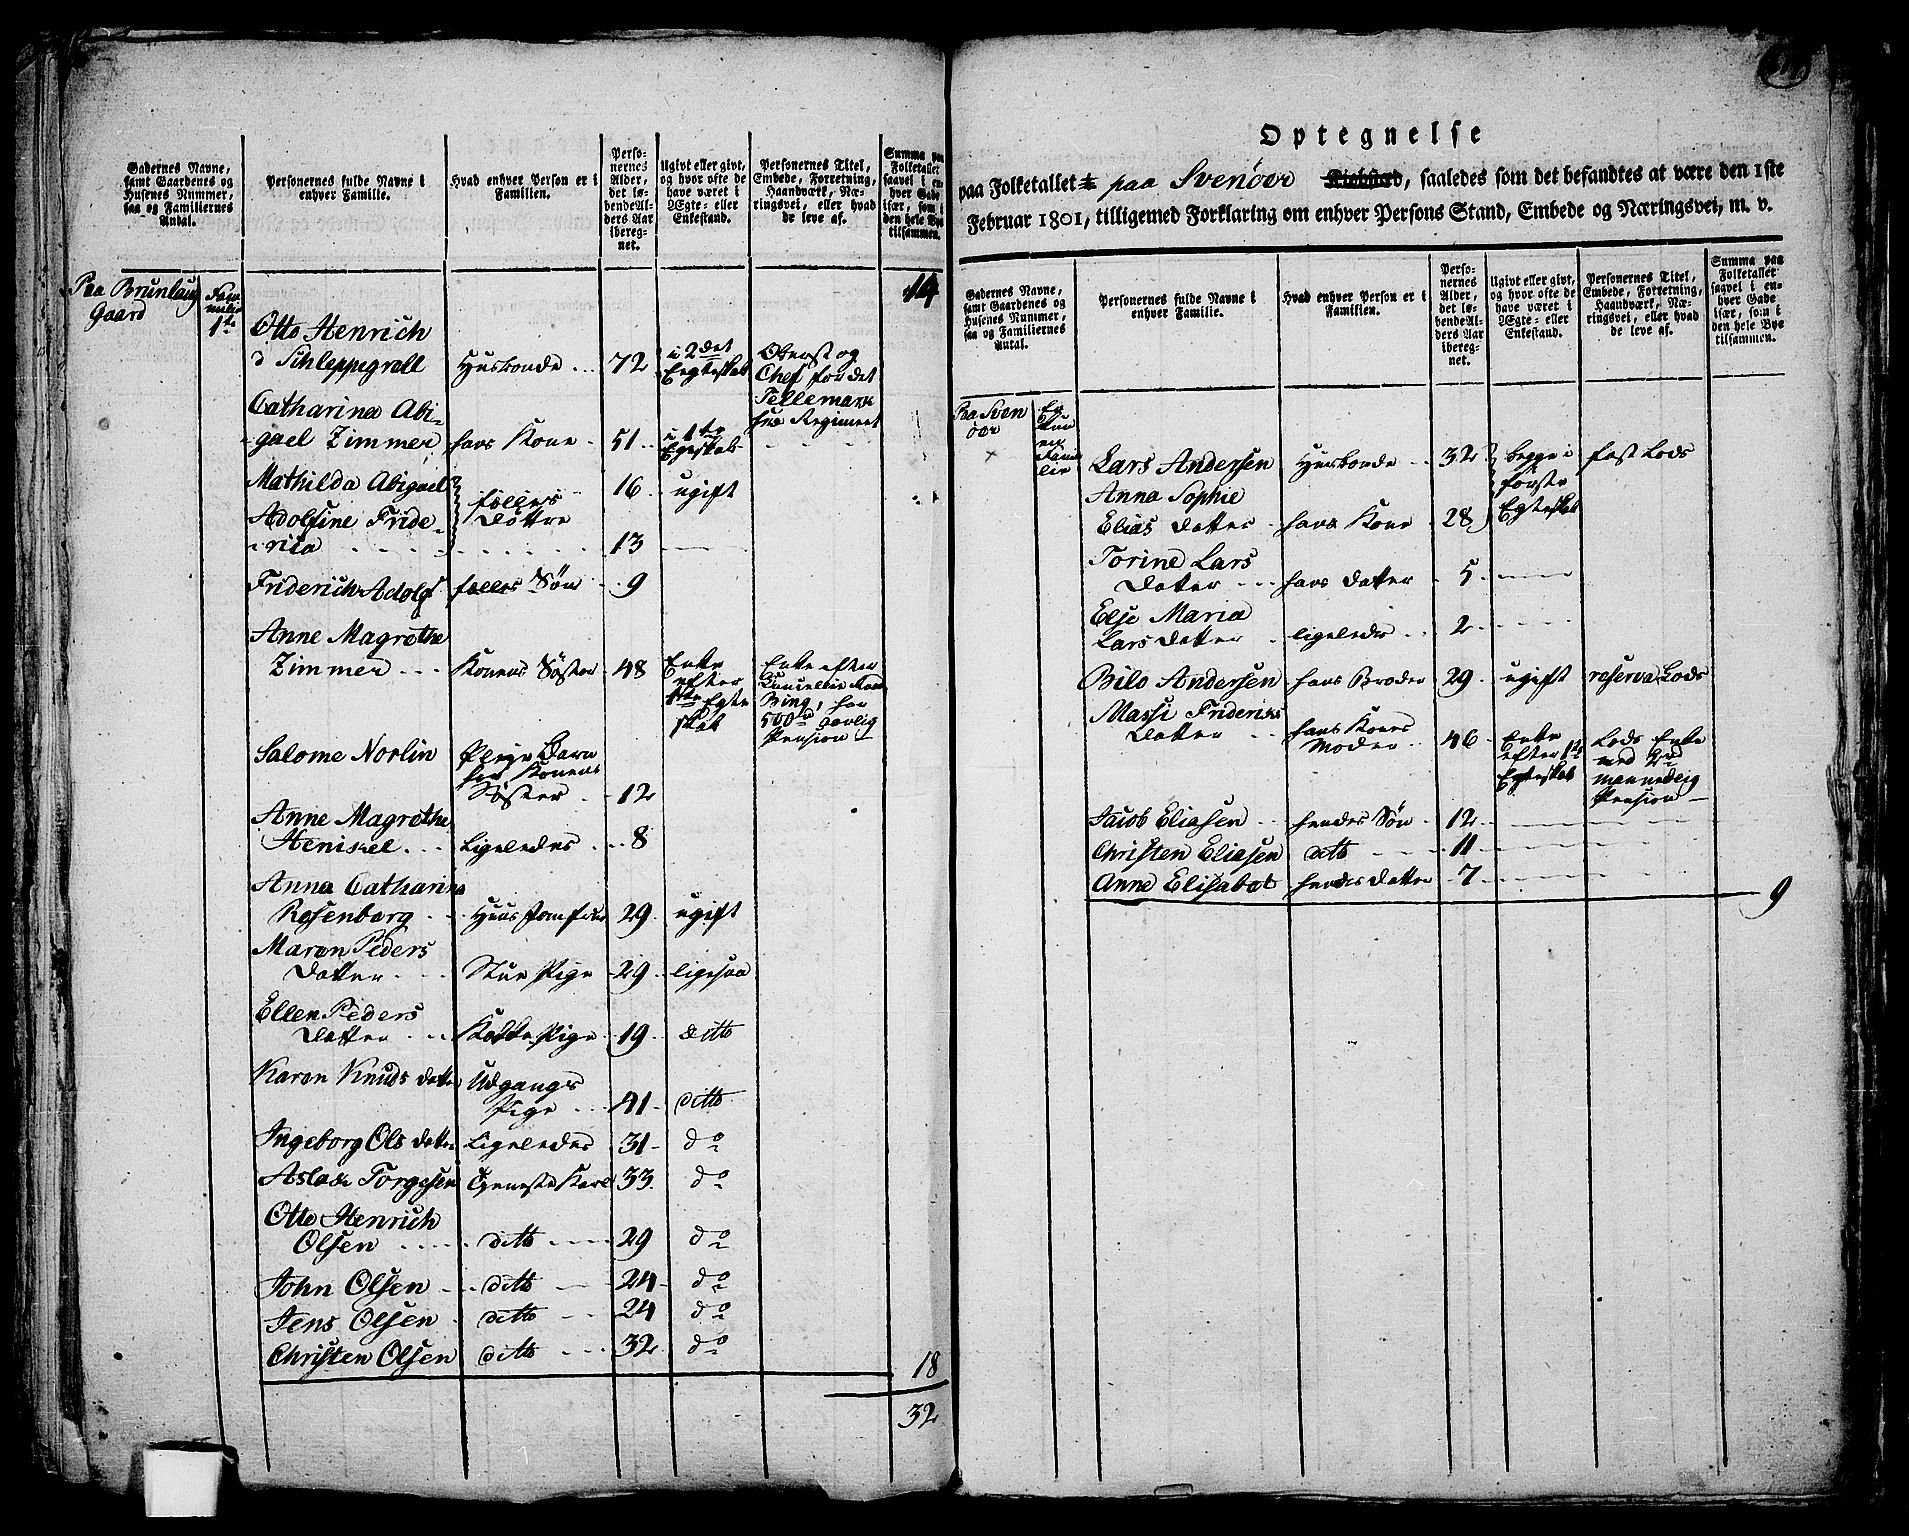 Gadernes Navne, samt Gaardenes og Husenes Nummer, saa og Familiernes Antal.
Personernes fulde Navne i enhver Familie.
Hvad enhver Person er i Familien.
Personernes Alder, det løbende Alders Aar iberegnet.
Ugivt eller givt, og hvor ofte de have været i Ægte- eller Enkestand.
Personernes Titel, Embede, Forretning, Haandværk, Næringsvei, eller hvad de leve af.
Summa paa Folketallet saavel i enhver Gade især, som i den hele Bye tilsammen.
Paa Brunlaug Gaard
1te
14
Otto Henrich
d Schleppegrell Huusbonde 72 i 2det Egteskab Oberst og Chef for det Tellemarkske Regiment
Catharina Abi-
gael Zimmer hans Kone 51 i 1te Egteskab
Mathilda Abigael fælles Døttre 16 ugift
Adolfine Fride-
rica 13
Friderich Adolf fælles Søn 9
Anne Magrethe
Zimmer Konens Søster 48 Enke efter 1te Egteskab Enke efter Cancellie Raad Bing, har 500rd aarlig Pension
Salome Norlin Pleye Barn
for Konens
Søster 12
Anne Magrethe
Henikel Ligeledes 8
Anna Catharina
Rosenberg Huus Jomfrue 29 ugift
Maren Peders
Datter Stue Pige 29 ligesaa
Ellen Peders
Datter Kokke Pige 19 ditto
Karen Knuds datter Udgangs
Pige 41 ditto
Ingeborg Ols datter Ligeledes 31 do
Aslak Torgesen Tjeneste Karl 33 do
Otto Henrich
Olsen ditto 29 do
John Olsen ditto 24 do
Jens Olsen ditto 24 do
Christen Olsen ditto 32 do
18
32
Optegnelse
paa Folketallet paa Svenöer Kiøbsted, saaledes som det befandtes at være den 1ste
Februar 1801, tilligemed Forklaring om enhver Persons Stand, Embede og Næringsvei, m. v.
Gadernes Navne, samt Gaardenes og Husenes Nummer, saa og Familiernes Antal.
Personernes fulde Navne i enhver Familie.
Hvad enhver Person er i Familien.
Personernes Alder, det løbende Alders Aar iberegnet.
Ugivt eller givt, og hvor ofte de have været i Ægte- eller Enkestand.
Personernes Titel, Embede, Forretning, Haandværk, Næringsvei, eller hvad de leve af.
Summa paa Folketallet saavel i enhver Gade især, som i den hele Bye tilsammen.
Paa Sven
öer
Lars Andersen Huusbonde 32 begge i første Egteskab fast Lods
Anna Sophie
Elias datter hans Kone 28
Torine Lars
Datter hans datter 5
Else Maria
Lars datter ligeledes 2
Bilo Andersen hans Broder 29 ugift reserva Lods
Massi Frideriks
Datter hans Kones
Moder 46 Enke efter 1te Egteskab Lods Enke med 2rd maanedlig Pension
Jacob Eliasen hendes Søn 12
Christen Eliasen ditto 11
Anne Elisabet hendes datter 7
9